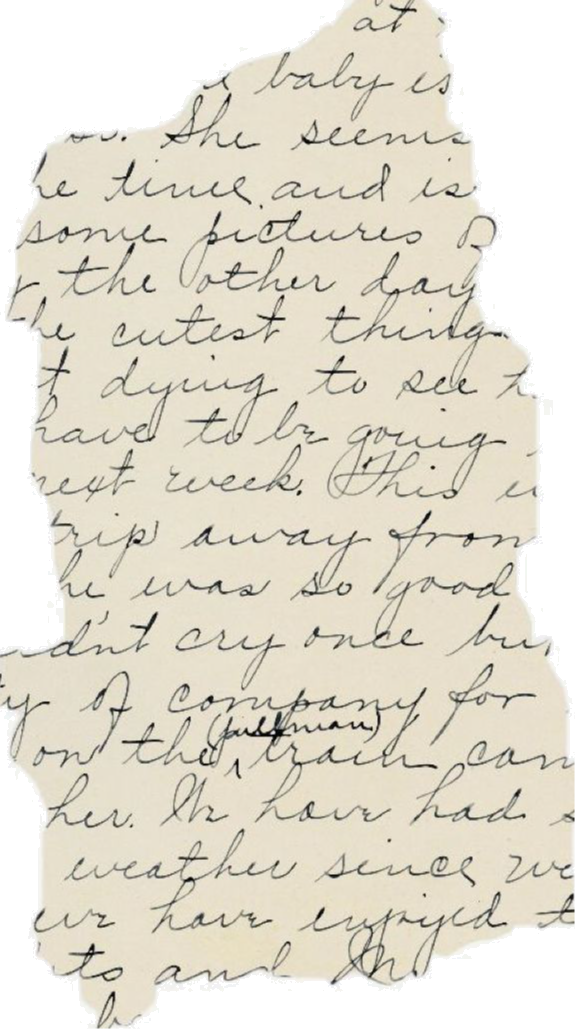 at
baby is
so. She seems
he time and is
some pictures of
the other day
he cutest thing
t dying to see
have to be going
next week. This
trip away from
he was so good
dn't cry once but
ty of company for
(pullman)
on the ^ train can
her. We have had s
weather since we
we have enjoyed t
ts and